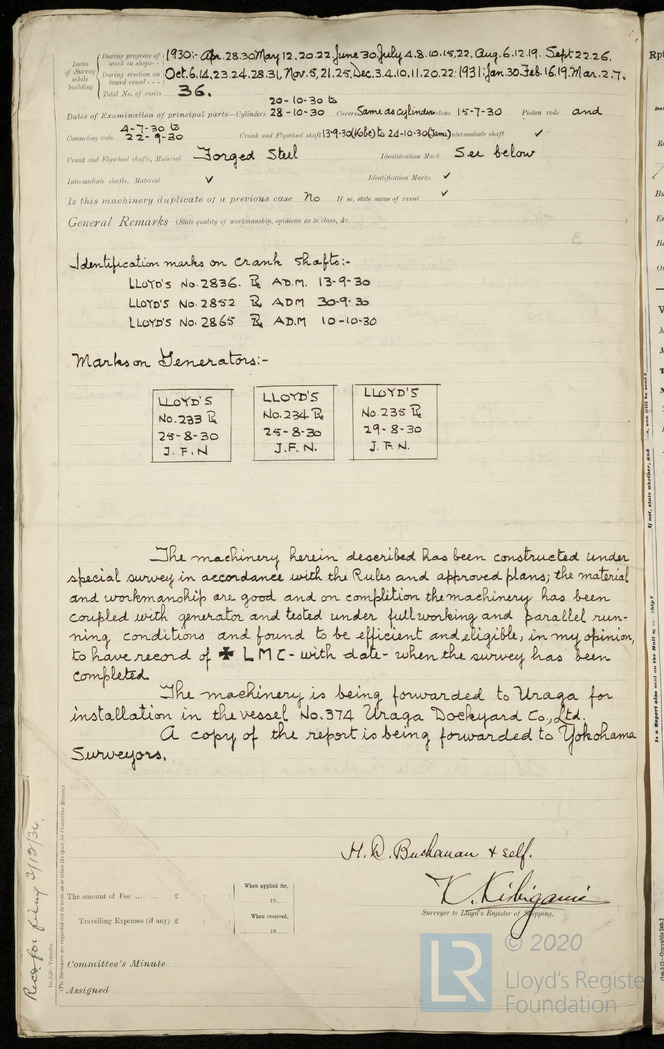 Dates of Survey while building
During progress of work in shops - - 1930:- Apr. 28.30 May 12.20.22 June 30 July 4.8.10.15.22. Aug. 6.12.19. Sept 22.26.
During erection on board vessel - - - Oct. 6.14.23.24.28.31, Nov. 5.21.25, Dec. 3.4.10.11.20.22: 1931: Jan. 30 Feb. 16.19. Mar. 2.7.
Total No. of visits 36.
20-10-30 to
Dates of Examination of principal parts—Cylinders 28-10-30 Covers Same as cylinders 15-7-30 Piston rods and
4-7-30 to
Connecting rods 22-9-30 Crank and Flywheel shaft 13-9-30 (Kobe) to 24-10-30 Intermediate shafts ✓
Crank and Flywheel shafts, Material Forged Steel Identification Mark See below
Intermediate shafts, Material ✓ Identification Marks ✓
Is this machinery duplicate of a previous case No If so, state name of vessel ✓
General Remarks (State quality of workmanship, opinions as to class, &c.
Identification marks on Crank Shafts:-
LLOYD'S No. 2836. ADM. 13-9-30
LLOYD'S No. 2852 ADM 30-9-30
LLOYD'S No. 2865 A.D.M 10-10-30
Marks on Generators:-
LLOYD'S No. 233 25-8-30 J.F.N
LLOYD'S No. 234 25-8-30 J.F.N.
LLOYD'S No. 235 29-8-30 J.F.N.
The machinery herein described has been constructed under
special survey in accordance with the Rules and approved plans; the material
and workmanship are good and on completion the machinery has been
coupled with generator and tested under full working and parallel run-
ning conditions and found to be efficient and eligible, in my opinion,
to have record of ✠ LMC - with date - when the survey has been
completed.
The machinery is being forwarded to Uraga for
installation in the vessel No. 374 Uraga Dockyard Co., Ltd.
A copy of the report is being forwarded to Yokohama
Surveyors.
H. D. Buchanan & self.
K. Kibigami
Surveyor to Lloyd's Register of Shipping.
The amount of Fee ... ... £ : :
When applied for,
19
Travelling Expenses (if any) £ : :
When received,
19
Committee's Minute
Assigned
© 2020
LR
Lloyd's Register
Foundation